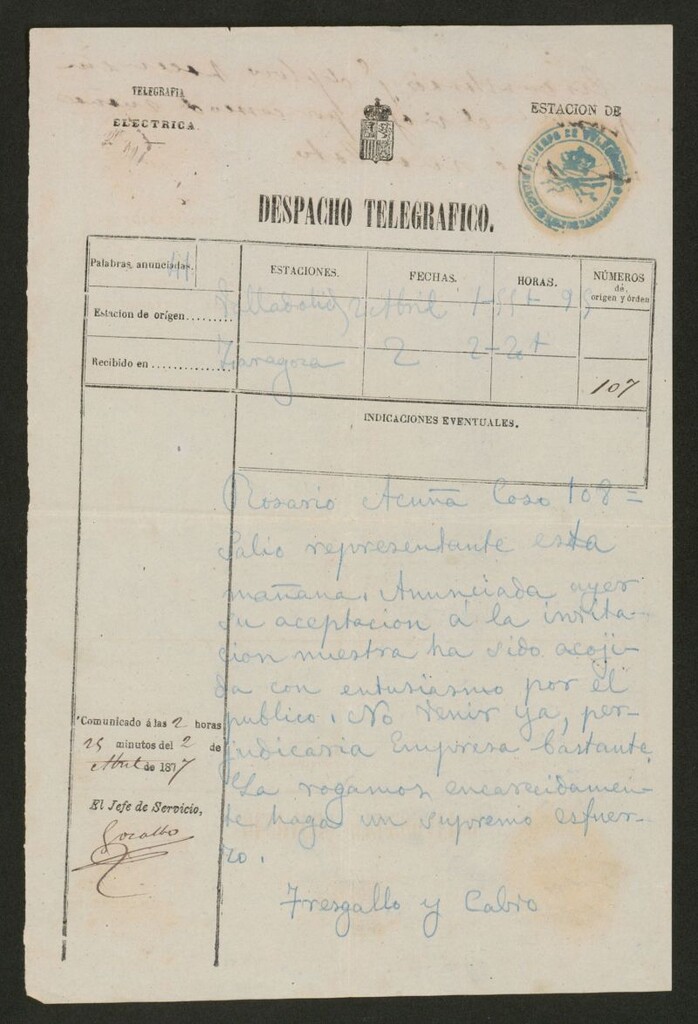 TELEGRAFIA
ELECTRICA.
ESTACION DE
DESPACHO TELEGRAFICO.
Palabras anunciadas.
ESTACIONES.
FECHAS.
HORAS.
NÚMEROS
de
origen y órden
Estacion de orígen........
Valladolid 2 Abril 1-55t 95
Recibido en ..............
Zaragoza 2 2-2t
107
INDICACIONES EVENTUALES.
Rosario Acuña Coso 108=
Salio representante esta
mañana. Anunciada ayer
su aceptacion á la invita-
cion nuestra ha sido acoji-
da con entusiasmo por el
publico. No venir ya, per-
judicaria Empresa bastante.
La rogamos encarecidamen-
te haga un supremo esfuer-
zo.
Fresgallo y Cabro
Comunicado á las 2 horas
25 minutos del 2 de
Abril de 1877
El Jefe de Servicio,